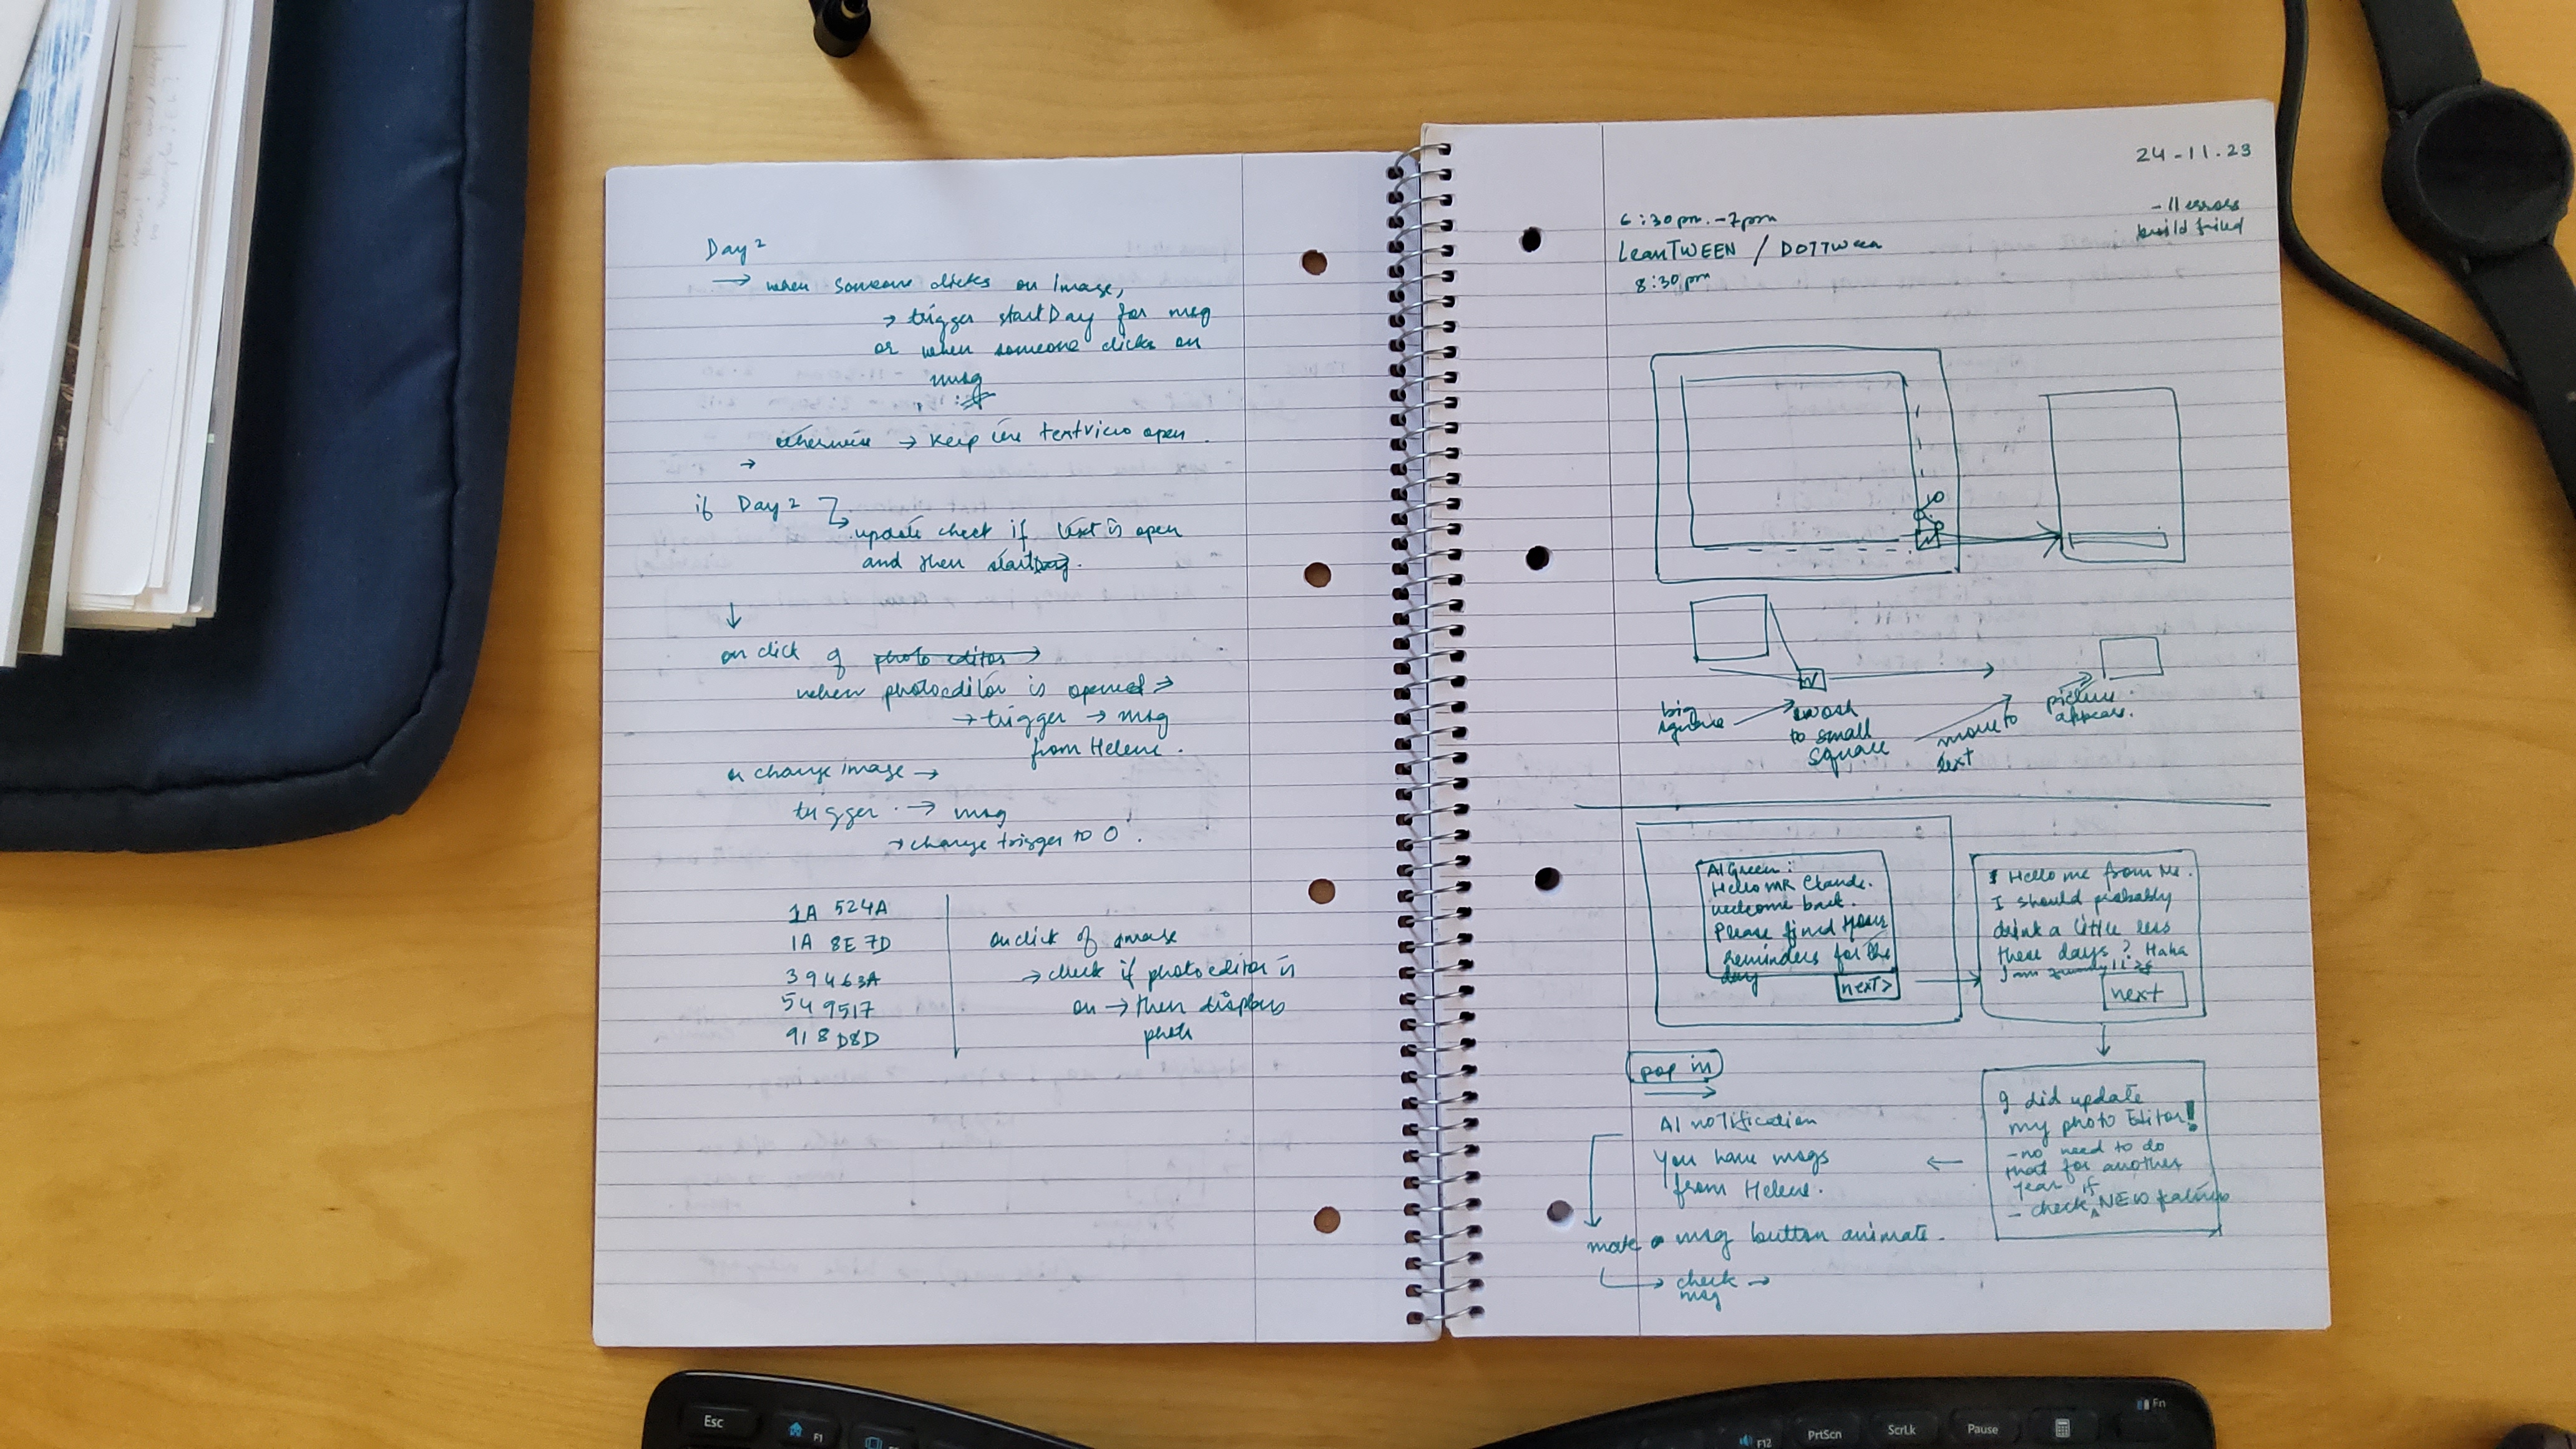 Day 2
→ when someone clicks on Image,
→ trigger startDay for msg
or when someone clicks on
msg
otherwise → keep the textview open.
→
if Day 2
update check if text is open
and then startDay.
↓
on click of photo editor →
when photoeditor is opened ⇒
→ trigger → msg
from Helene.
on change image →
trigger → msg
→ change trigger to 0.
1A 524A
1A 8E 7D
39463A
549517
918D8D
on click of image
→ check if photoeditor is
on → then displays
photo
24-11.23
- 11 errors
build failed
6:30pm.-7pm
LeanTWEEN / DOTTween
8:30pm
big
square
to small
square
move to
text
picture
appears.
AI Green:
Hello MR Claude.
welcome back.
Please find your
reminders for the
day
next>
Hello me from Me.
I should probably
drink a little less
these days? Haha
next
I did update
my photo Editor!
- no need to do
that for another
year
- check if NEW
pop in
→
AI notification
You have msgs
from Helene.
←
make a msg button animate.
→ check →
msg
Esc
F1
F12
PrtScn
ScrLk
Pause
Fn